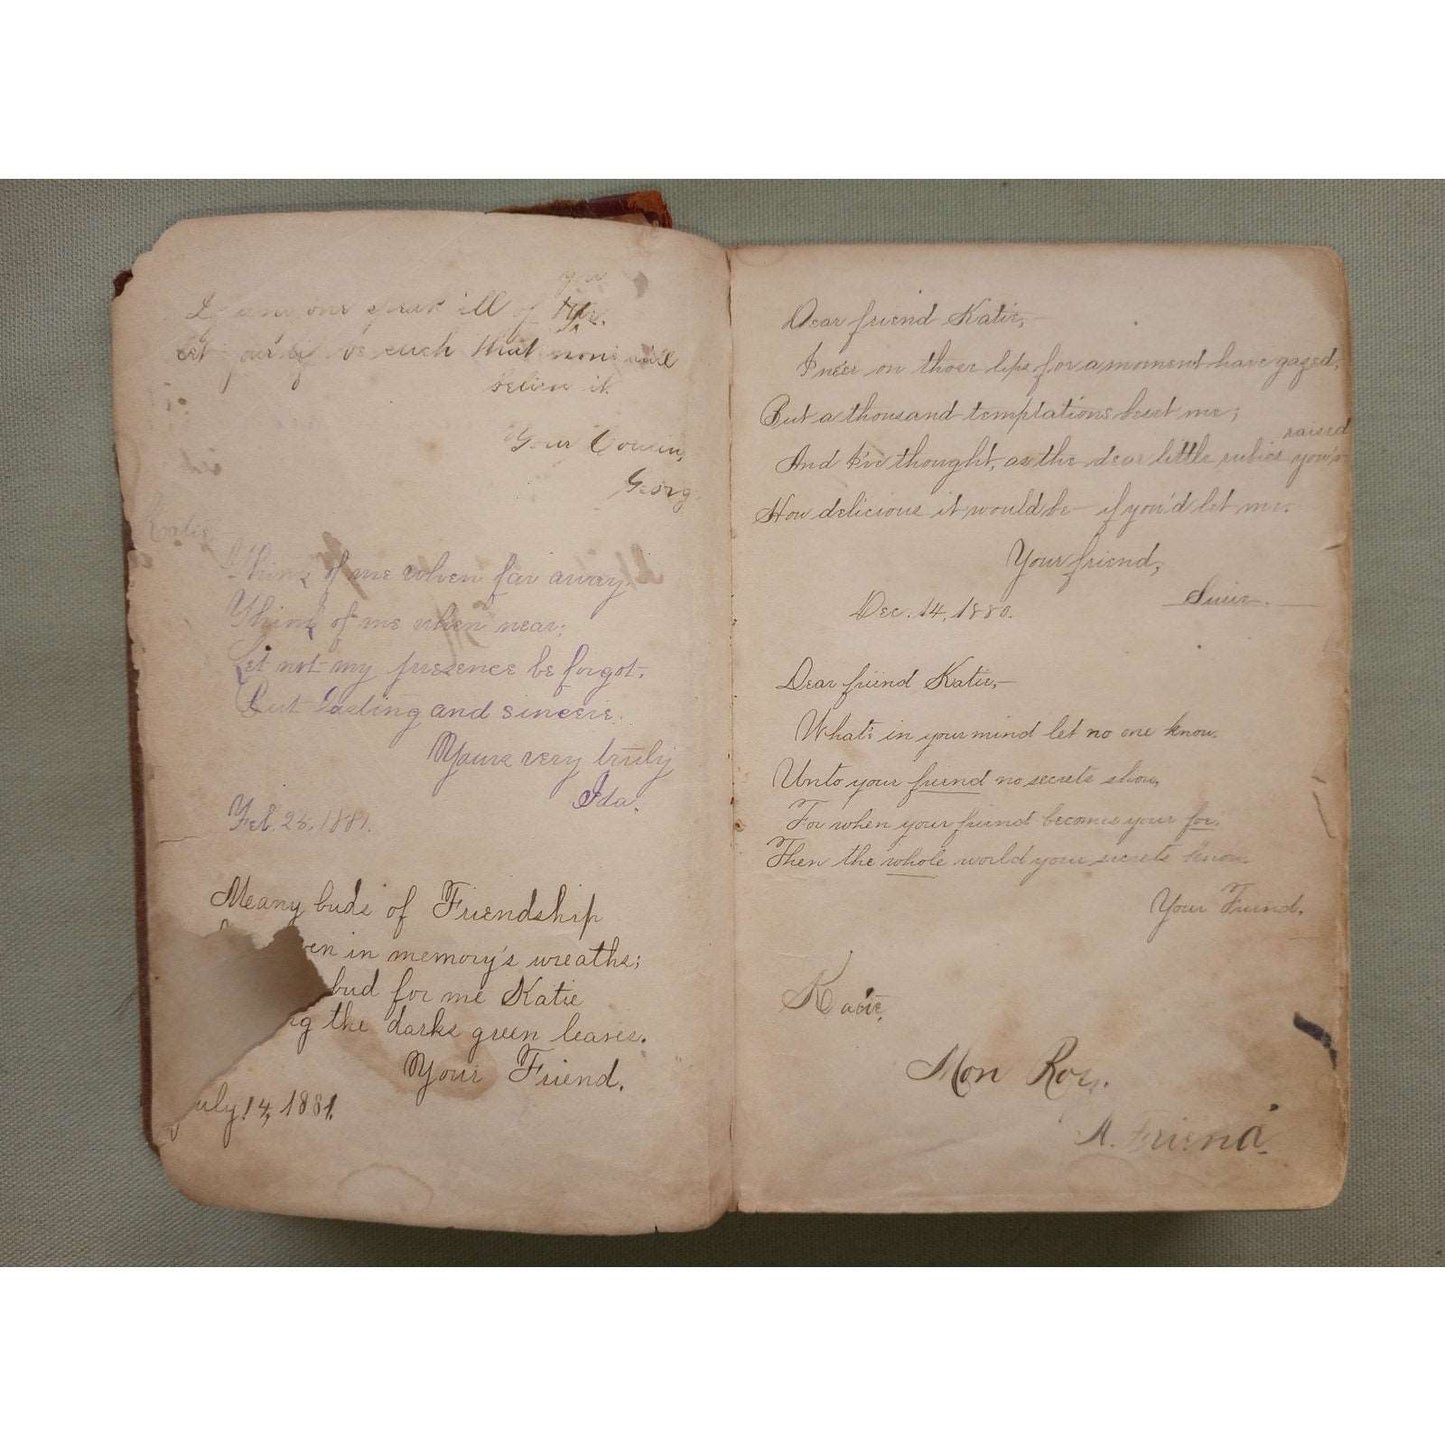 you
If anyone speak ill of
Let your life be such that none will
believe it.
Your Cousin,
Georg
Think of me when far away,
Think of me when near;
Let not my presence be forgot,
But lasting and sincere.
Yours very truly
Ida.
Feb. 25, 1881.
Meany buds of Friendship
en in memory's wreaths;
bud for me Katie
ng the darks green leaves.
Your Friend.
uly 14, 1881.
Dear friend Katie,
I ne'er on thoes lips for a moment have gazed,
But a thousand temptations beset me;
raised
And I've thought, as the dear little rubies you'v
How delicious it would be if you'd let me.
Your friend,
Susie.
Dec. 14, 1880.
Dear friend Katie,
What's in your mind let no one know.
Unto your friend no secrets show,
For when your friend becomes your foe.
Then the whole world your secrets know.
Your Friend.
Katie.
Mon Roy.
A. Friend.